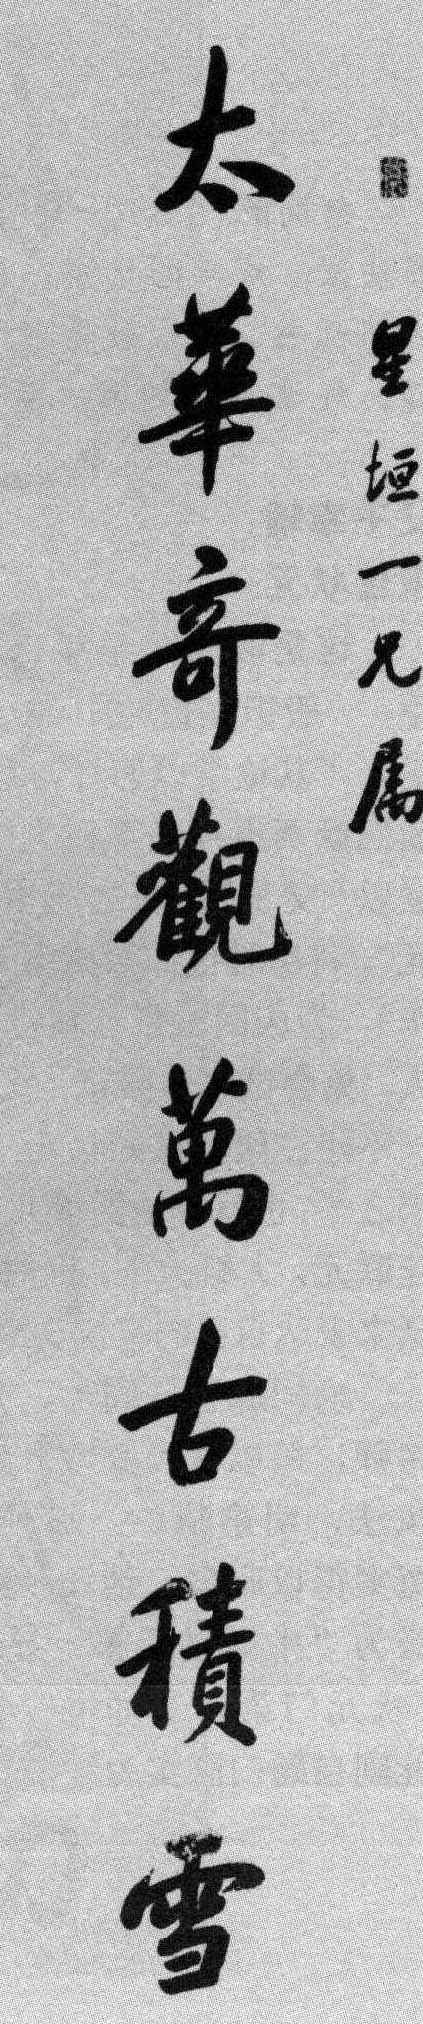 星垣一兄属
太華奇觀萬古積雪